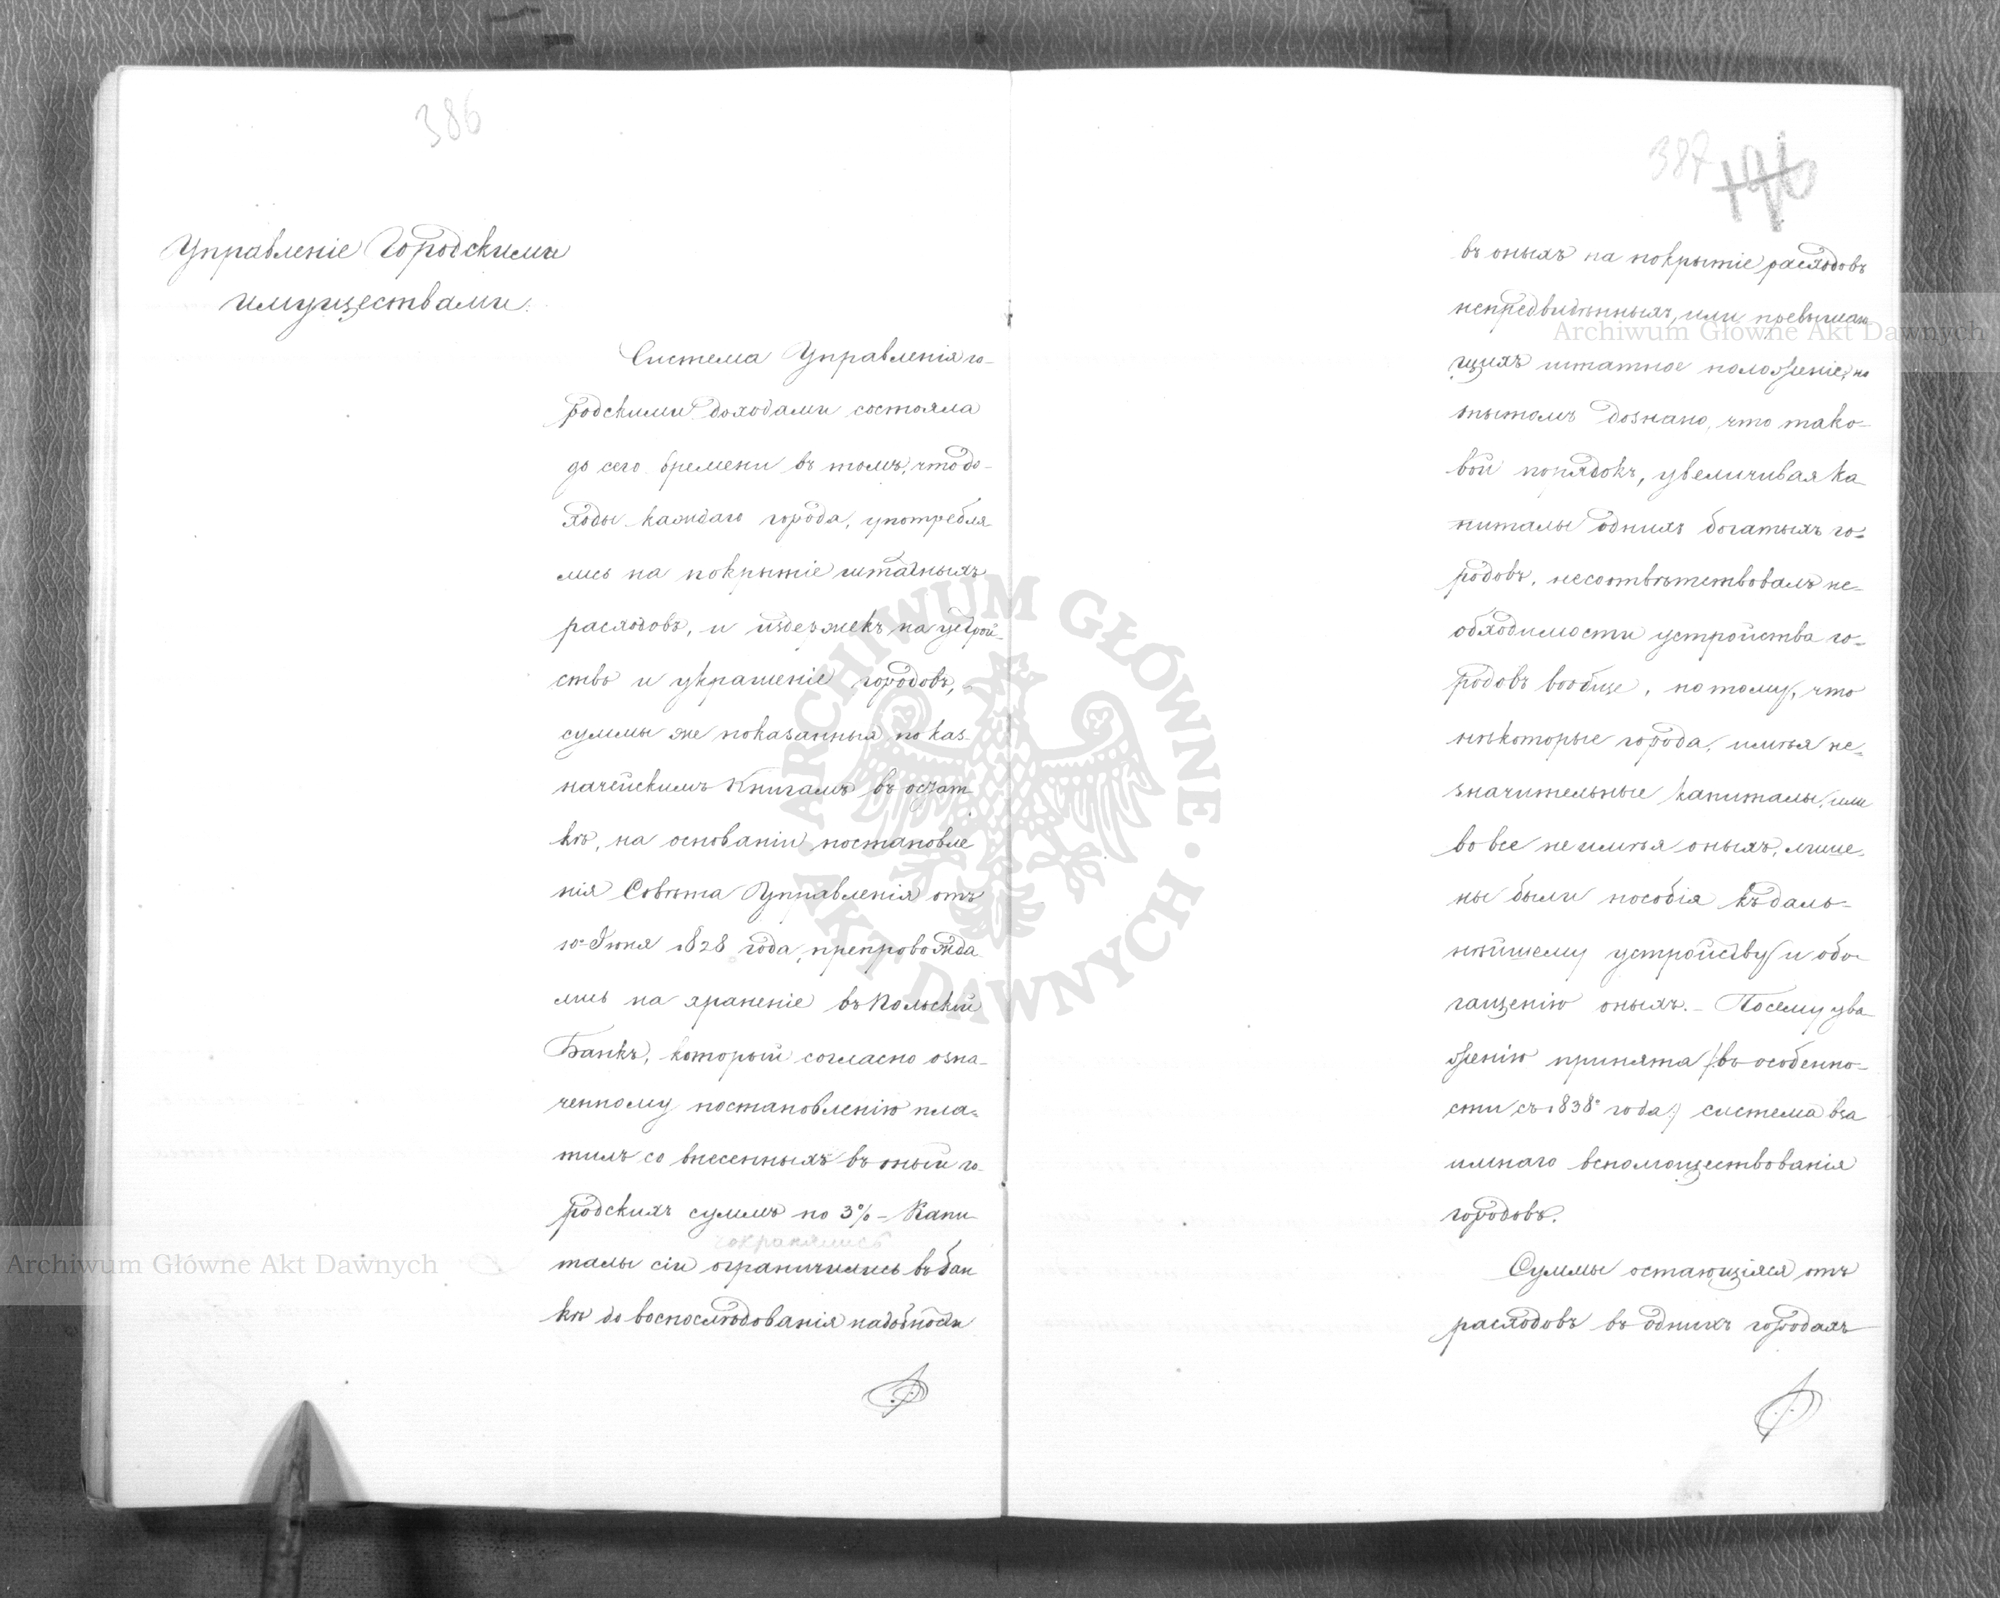 386
Управленіе Городскими
имуществами.
Система Управленія го-
родскими доходами состояла
до сего времени въ томъ, что до-
ходы каждаго города, употребля
лись на покрытіе штатныхъ
расходовъ, и издержекъ на устрой-
ство и украшеніе городовъ,
суммы же показанныя по каз-
начейскимъ Книгамъ въ остат
кѣ, на основаніи постановле
нія Совѣта Управленія отъ
10 Іюня 1828 года, препровожда
лись на храненіе въ Польскій
Банкъ, который согласно озна-
ченному постановленію пла-
тилъ со внесенныхъ въ оный го-
родскихъ суммъ по 3% - Капи
сохранялись
талы сіи ограничились въ бан
кѣ до воспослѣдованія надобности
387
въ оныхъ на покрытіе расходовъ
непредвидѣнныхъ, или превышаю
щихъ штатное положеніе; но
опытомъ дознано, что тако-
вой порядокъ, увеличивая ка
питалы однихъ богатыхъ го-
родовъ, несоотвѣтствовалъ не-
обходимости устройства го-
родовъ вообще, потому, что
нѣкоторые города, имѣя не-
значительные капиталы, или
вовсе не имѣя оныхъ, лише-
ны были пособія къ даль-
нѣйшему устройству и обо-
гащенію оныхъ. - Посему ува
женію принята /:въ особенно-
сти съ 1838 года:/ система вза
имнаго вспомоществованія
городовъ.
Суммы остающіяся отъ
расходовъ въ однихъ городахъ
Archiwum Główne Akt Dawnych
Archiwum Główne Akt Dawnych
ARCHIWUM GŁÓWNE AKT DAWNYCH